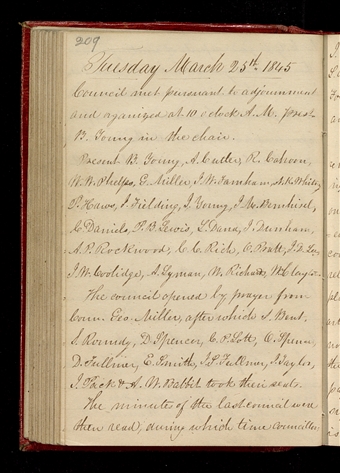 209
Tuesday March 25th. 1845
Council met pursuant to adjournment
and organized at 10 o clock A.M. prest.
B. Young in the chair.
Present B. Young, A. Cutler, R. Cahoon,
W. W. Phelps, E. Miller, J. W. Farnham,
P. Haws, J. Fielding, J. Young, J. M. Bernhisel,
C. Daniels, P. B. Lewis, L. Dana, J. Dunham,
A. P. Rockwood, C. C. Rich, O. Pratt, J. D. Lee,
J. W. Coolidge, A. Lyman, W. Richards, W. Clayton
The council opened by prayer from
Coun. Geo. Miller, after which S. Bent,
S. Roundy, D. Spencer, C. P. Lott, O. Spencer,
D. Fullmer, E. Smith, J. S. Fullmer, J. Taylor,
J. Pack & A. W. Babbit took their seats.
The minutes of the last council were
then read, during which time councillor